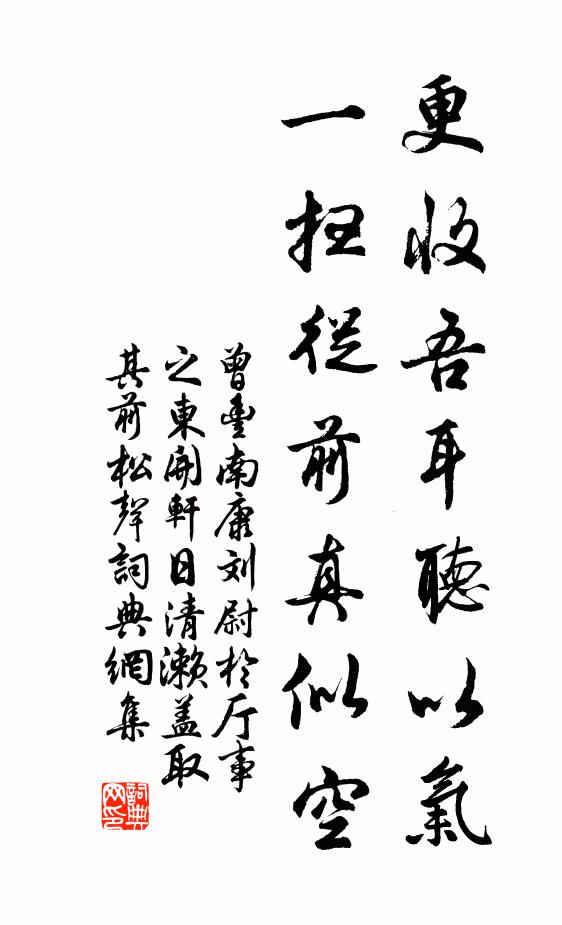 更收吾耳聽以氣
一扫從前真似空
曾豐南康刘尉於厅事
之東開軒日清瀨蓋取
其前松聲詞典網集
詞典网印